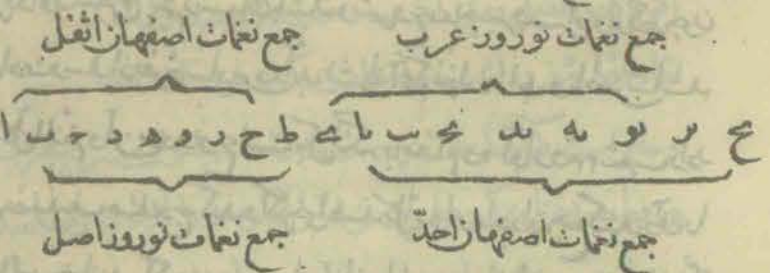 جمع نغمات نوروز عرب    جمع نغمات اصفهان اثقل
یح یز یو یه ید یج یب یا ی ط ح ز و ه د ج ب ا
جمع نغمات اصفهان احدّ    جمع نغمات نوروز اصل